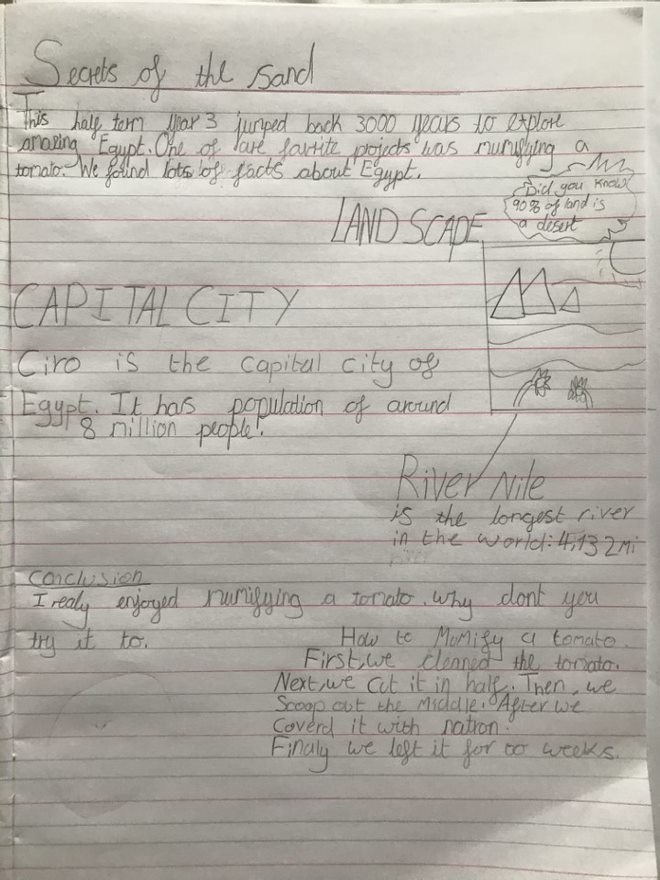 Secrets of the sand
This half term year 3 jumped back 3000 years to explore
amazing Egypt. One of are favrite projects was mumifying a
tomato. We found lots of facts about Egypt.
Did you know
90% of land is
a desert
LANDSCAPE
CAPITAL CITY
Ciro is the capital city of
Egypt. It has population of around
8 million people!
River Nile
is the longest river
in the world: 4,132 mi
Conclusion
I realy enjoyed mumifying a tomato. why dont you
try it to.
How to Mumify a tomato.
First, we cleaned the tomato.
Next, we cut it in half. Then, we
Scoop out the middle. After we
Coverd it with natron.
Finaly we left it for weeks.